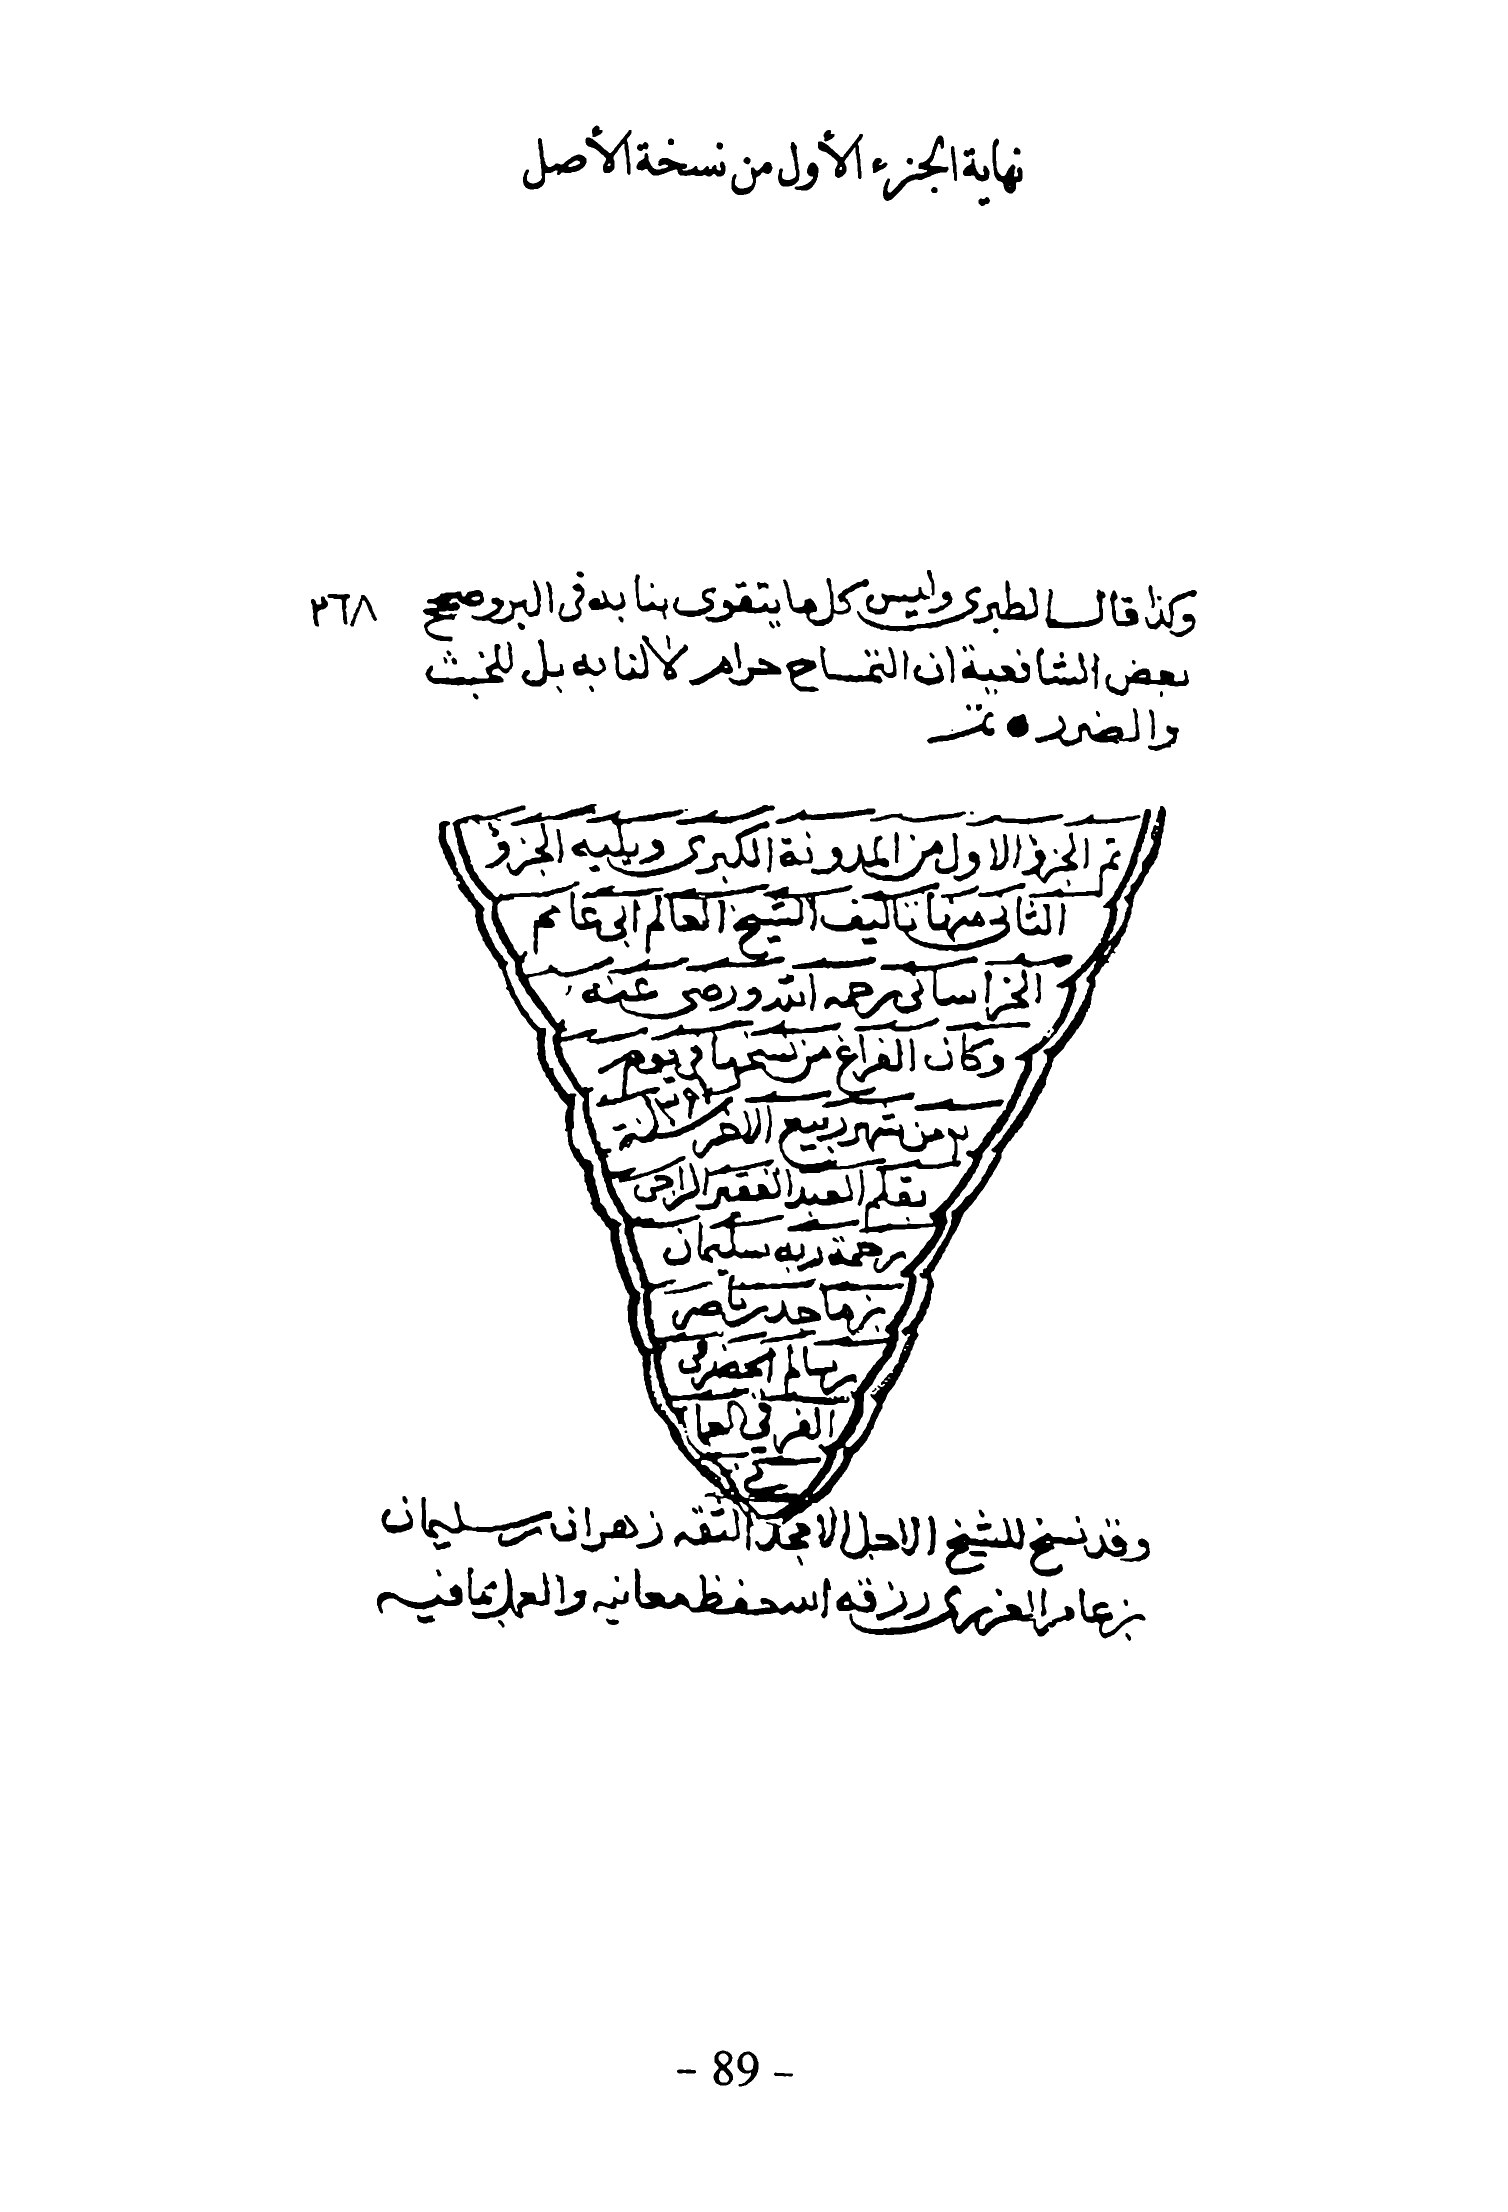 نهاية الجزء الأول من نسخة الأصل
٣٦٨
وكذا قال الطبرى وليس كل ما يتقوى بنابه فى البر وصحح
بعض الشافعية ان التمساح حرام لا لنابه بل للخبث
والضرر • تمت
تم الجزؤ الاول من المدونة الكبرى ويليه الجزؤ
الثانى منها تاليف الشيخ العالم ابى غانم
الخراسانى رحمه الله ورضى عنه
وكان الفراغ من نسخها فى يوم
من شهر ربيع الاخر سنة
بقلم العبد الفقير الراجى
رحمة ربه سليمان
بن ماجد بن ناصر
بن سالم الحضرمى
الفرقى العما
نى
وقد نسخ للشيخ الاجل الامجد الثقه زهران بن سليمان
بن عامر العزرى رزقه الله حفظ معانيه والعمل بما فيه
- 89 -